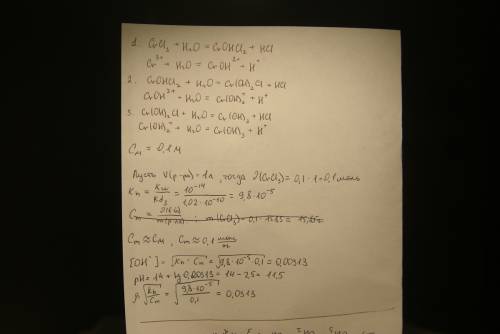 1. CrCl₃ + H₂O = CrOHCl₂ + HCl
Cr³⁺ + H₂O = CrOH²⁺ + H⁺
2. CrOHCl₂ + H₂O = Cr(OH)₂Cl + HCl
CrOH²⁺ + H₂O = Cr(OH)₂⁺ + H⁺
3. Cr(OH)₂Cl + H₂O = Cr(OH)₃ + HCl
Cr(OH)₂⁺ + H₂O = Cr(OH)₃ + H⁺
Cм = 0,1 м
Пусть V(р-ра) = 1л, тогда ϑ(CrCl₃) = 0,1 · 1 = 0,1 моль
Kh = Kw / Kd₃ = 10⁻¹⁴ / 1,02 · 10⁻¹⁰ = 9,8 · 10⁻⁵
Cm ≈ Cм, Cm ≈ 0,1 моль/кг
[OH⁻] = √Kh · Cm = √9,8 · 10⁻⁵ · 0,1 = 0,00313
pH = 14 + lg 0,00313 = 14 - 2,5 = 11,5
√Kh / Cm = √9,8 · 10⁻⁵ / 0,1 = 0,0313